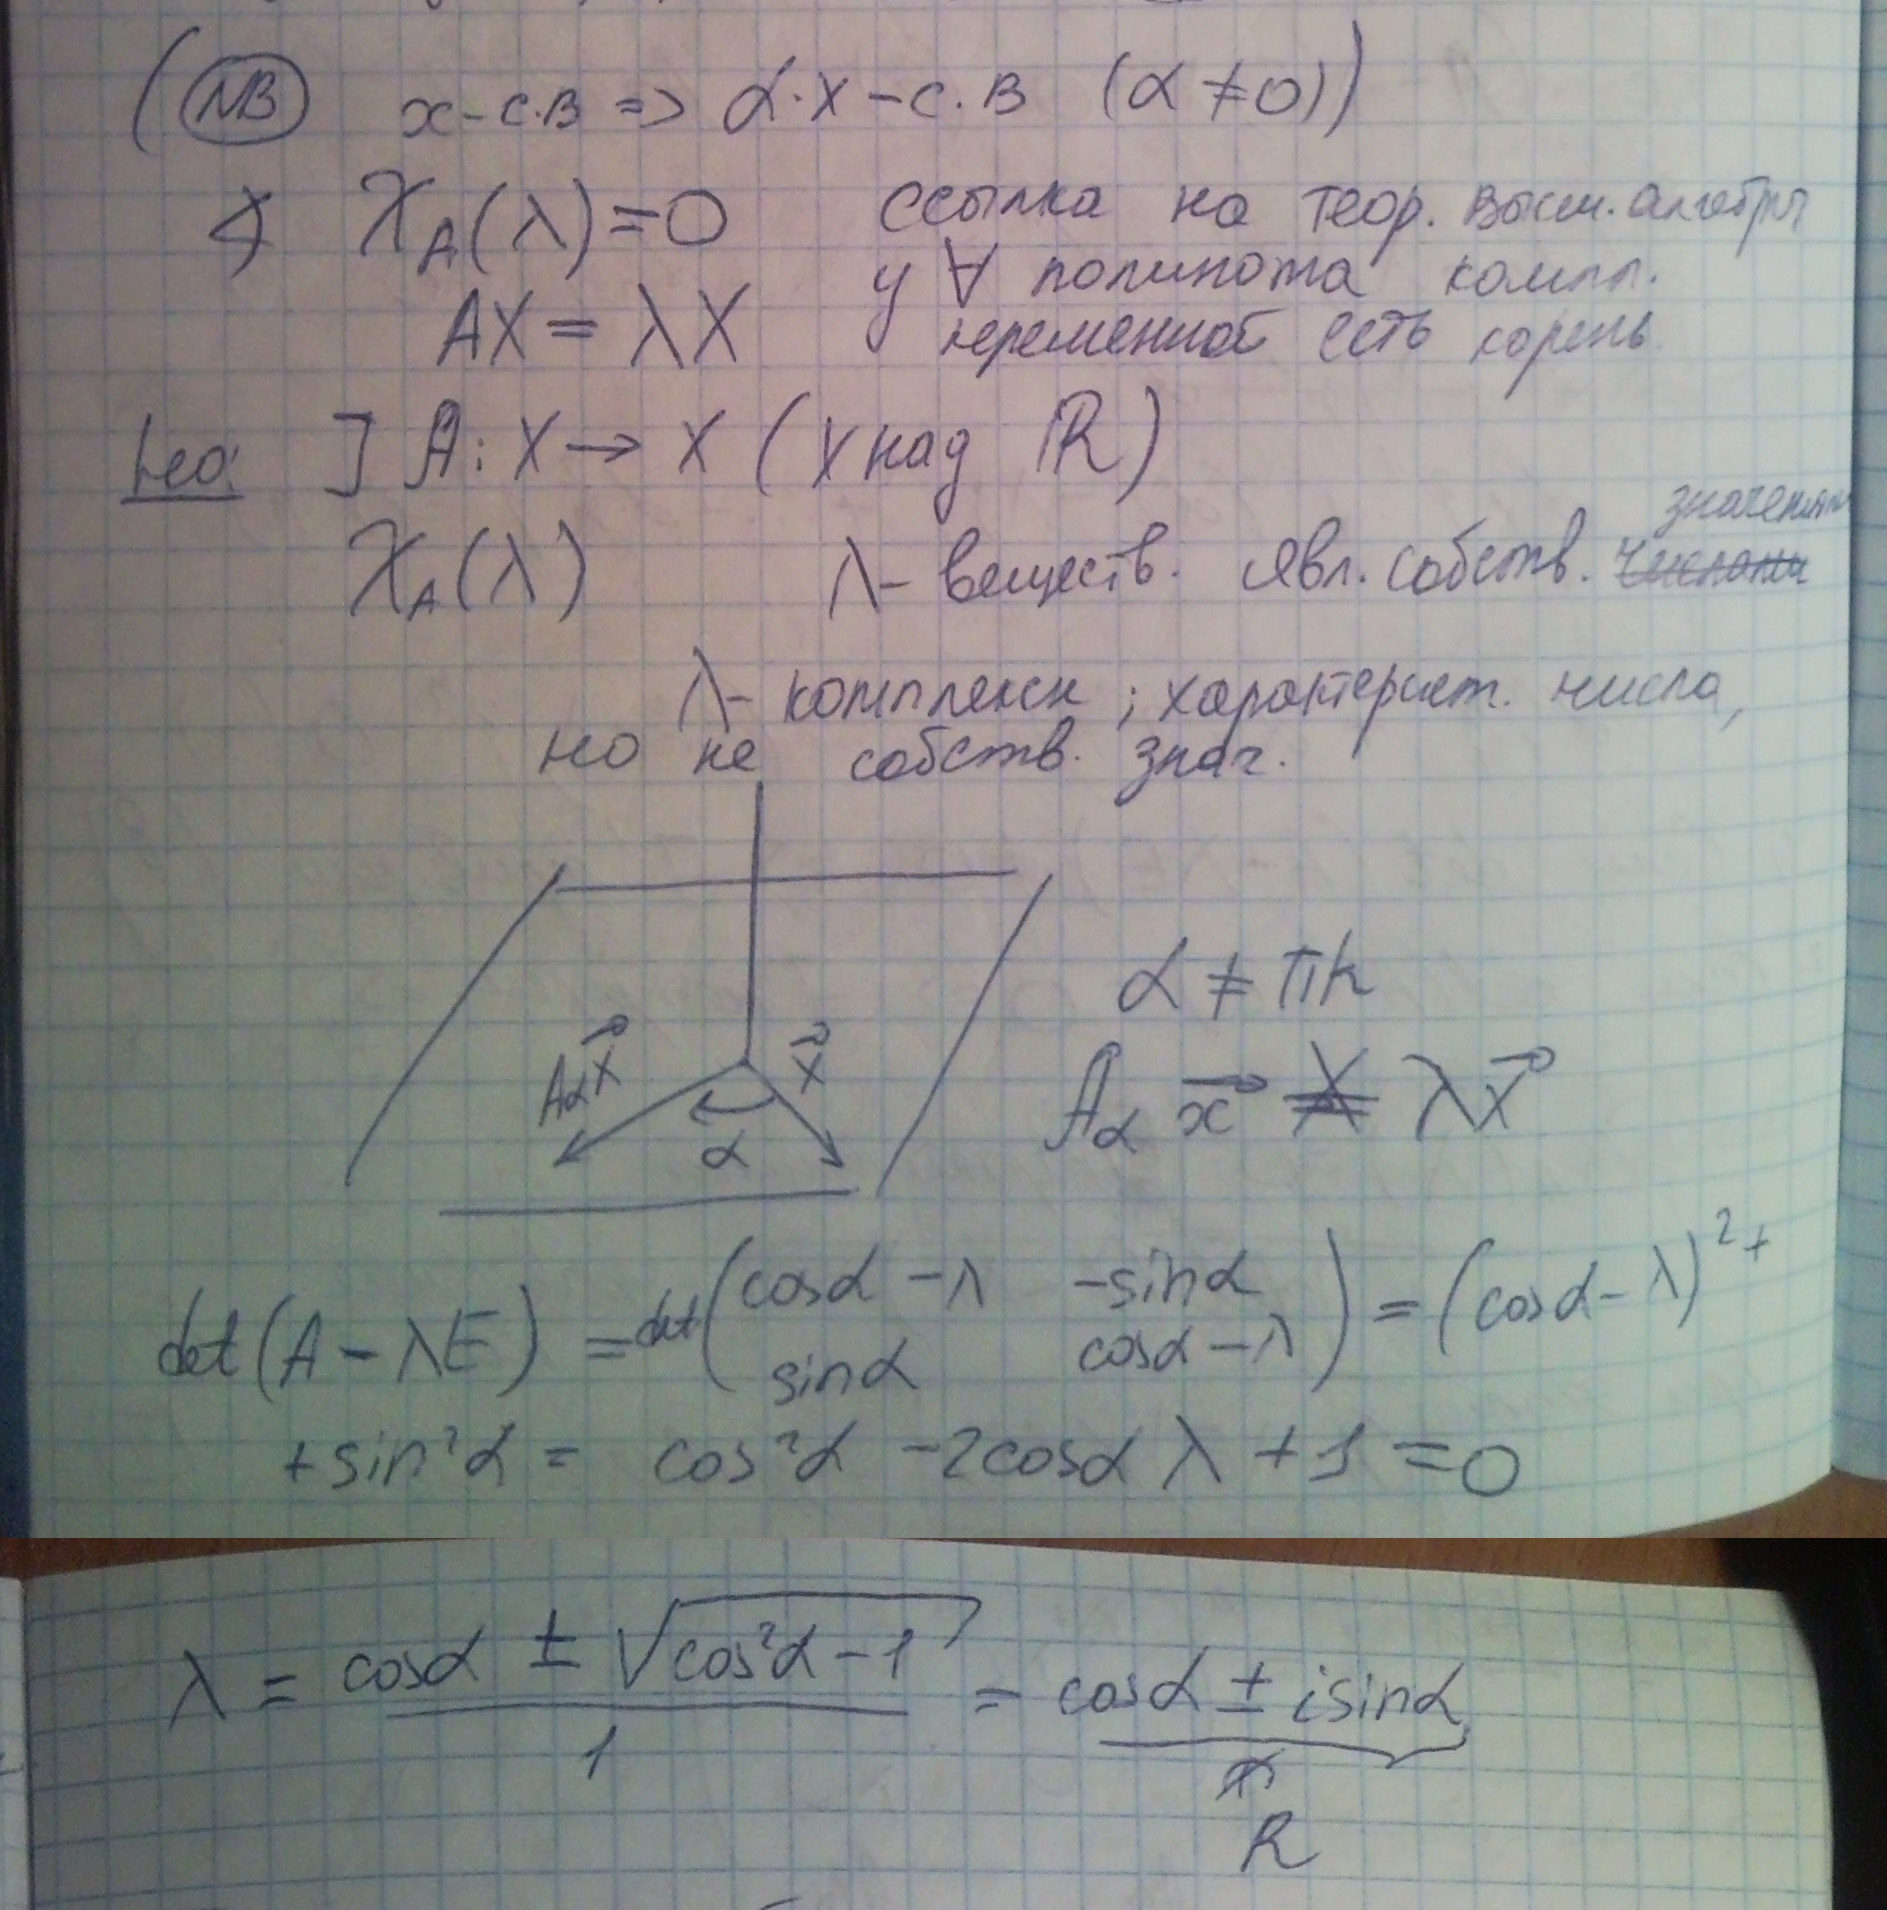 (NB x - с.в => α·x - с.в (α ≠ 0))
∢ χ_A(λ) = 0 ссылка на теор. высш. алгебры
у ∀ полинома компл.
AX = λX переменной есть корень
Но: ] A: X → X (X над ℝ)
значениями
χ_A(λ) λ - веществ. явл. собств. числами
λ - комплексн ; характерист. числа,
но не собств. знач.
α ≠ πk
A_α x⃗ x⃗
A_α x⃗ ≠ λx⃗
α
det(A - λE) = det(cosα - λ -sinα
sinα cosα - λ) = (cosα - λ)² +
+ sin²α = cos²α - 2cosα λ + 1 = 0
λ = cosα ± √cos²α - 1 / 1 = cosα ± isinα
∉
R